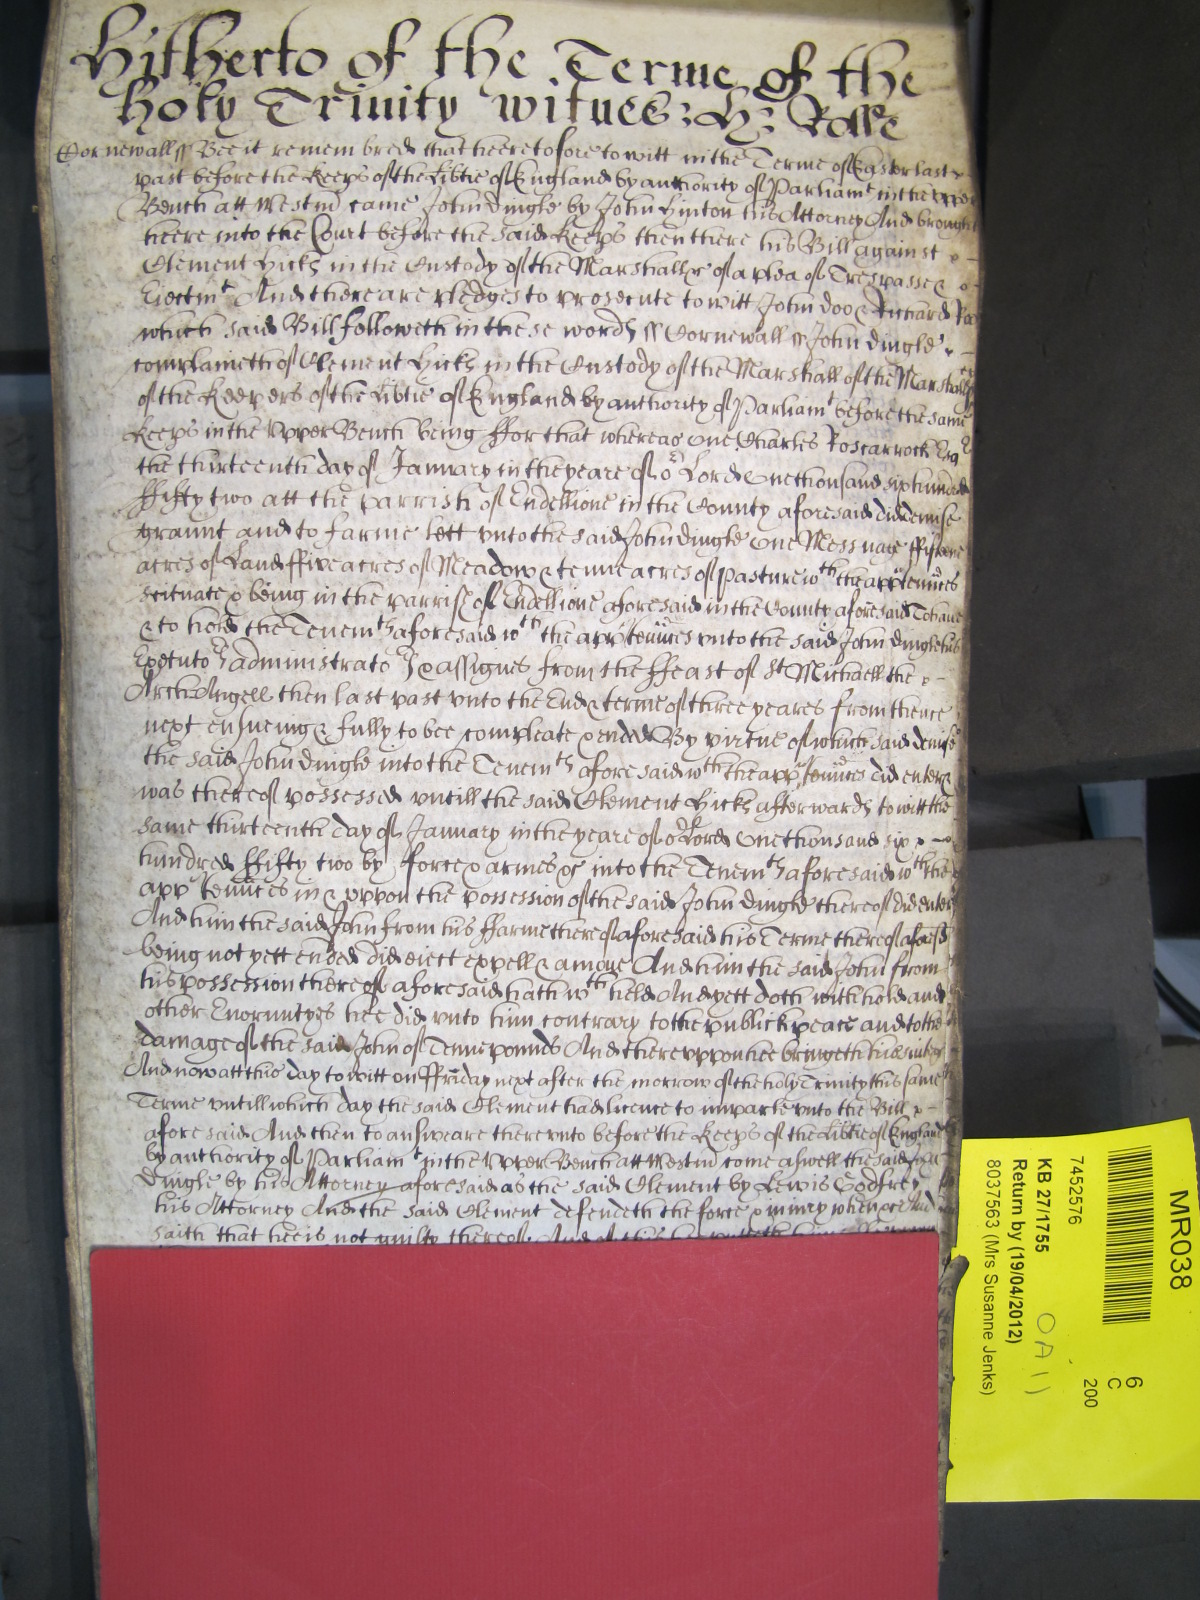 Hitherto of the Terme of the
holy Trinity witnes: H: Rolle
Cornewall ss Bee it remembred that heeretofore to witt in the Terme of Easter last
past before the Keeps of the Libtie of England by authority of Parliamt in the vpper
Bench att Westm came John Dingle by John Hinton his Attorney And brought
heere into the Court before the said Keeps then there his Bill against
Clement Hicks in the Custody of the Marshall &c of a plea of Trespasse &
Eiectmt And there are pledges to prosecute to witt John Doo & Richard Roo
which said Bill followeth in these words ss Cornewall ss John Dingle
complaineth of Clement Hicks in the Custody of the Marshall of the Marshalsey
of the Keepers of the Libtie of England by authority of Parliamt before the same
Keeps in the Vpper Bench being ffor that whereas one Charles Roscarrock Esq
the thirteenth day of January in the yeare of or Lord One thousand six hundred
ffifty two att the parrish of Endellione in the County aforesaid did demise
graunt and to farme lett vnto the said John Dingle One Messuage ffifteene
acres of Land ffive acres of Meadow & tenne acres of Pasture wth the apptennces
scituate & being in the parrish of Endellione aforesaid in the County aforesaid To haue
& to hold the Tenemts aforesaid wth the apptennces vnto the said John Dingle his
Executors administrators & assignes from the ffeast of St Michaell the
Arch Angell then last past vnto the End & terme of three yeares from thence
next ensueing & fully to bee compleate & ended By virtue of which said demise
the said John Dingle into the Tenemts aforesaid wth the apptennces did enter &
was thereof possessed vntill the said Clement Hicks afterwards to witt the
same thirteenth day of January in the yeare of or Lord One thousand six
hundred ffifty two by force & armes &c into the Tenemts aforesaid wth the
apptennces in & vppon the possession of the said John Dingle thereof did enter
And him the said John from his ffarme thereof aforesaid his Terme thereof aforesd
being not yett ended did eiect expell & amoue And him the said John from
his possession thereof aforesaid hath wth held And yett doth withhold and
other Enormityes hee did vnto him contrary to the publick peace and to the
damage of the said John of Tenne pounds And therevppon hee bringeth his suite &c
And now att this day to witt on ffriday next after the morrow of the holy Trinity this same
Terme vntill which day the said Clement had licence to imparle vnto the Bill
aforesaid And then to answeare therevnto before the Keeps of the Libtie of England
by authority of Parliamt in the Vpper Bench att Westm come aswell the said John
Dingle by his Attorney aforesaid as the said Clement by Lewis Godfrey
his Attorney And the said Clement defendeth the force & iniury when &c And
saith that hee is not guilty thereof And of this hee putteth
MR038
6
C
200
7452576
KB 27/1755
OA 11
Return by (19/04/2012)
8037563 (Mrs Susanne Jenks)